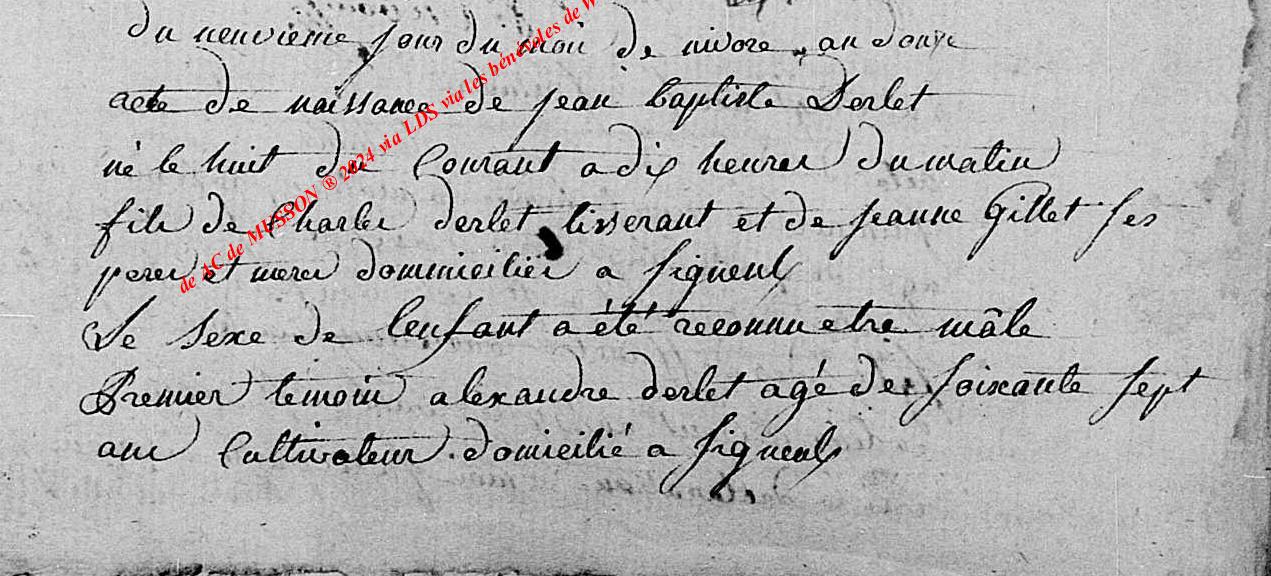 du neuvieme jour du moi de nivose an douze
acte de naissance de jean baptiste Derlet
né le huit du Courant a dix heures du matin
fils de Charles derlet tisserant et de jeanne Gillet ses
peres et meres dommicilies a signeulx
Le Sexe de lenfant a été reconnu etre mâle
Premier temoin alexandre derlet agé de soixante sept
ans Cultivateur domicilié a signeulx
de AC de MUSSON ® 2024 via LDS via les bénévoles de